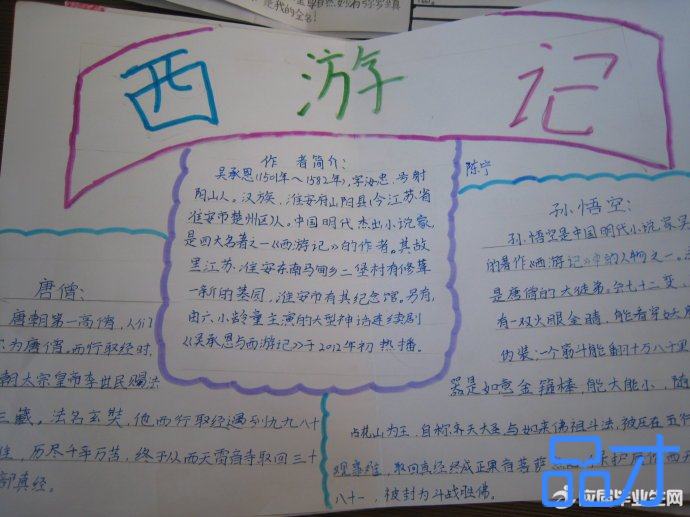 是我的全名!
西 游 记
陈宁
作 者简介:
吴承恩(1501年~1582年),字汝忠,号射
阳山人。汉族,淮安府山阳县(今江苏省
淮安市楚州区)人。中国明代杰出小说家,
是四大名著之一《西游记》的作者。其故
里江苏淮安东南马甸乡二堡村有修葺
一新的墓园,淮安市有其纪念馆。另有,
由六小龄童主演的大型神话连续剧
《吴承恩与西游记》于2012年初热播。
唐僧:
唐朝第一高僧,人们
为唐僧。西行取经时,
朝太宗皇帝李世民赐法
三藏。法名玄奘,他西行取经遇到九九八十
难,历尽千辛万苦,终于从西天雷音寺取回三十
部真经。
孙悟空:
孙悟空是中国明代小说家吴
的著作《西游记》中的人物之一。
是唐僧的大徒弟。会七十二变,
有一双火眼金睛,能看穿妖
伪装;一个筋斗能翻十万八千里
器是如意金箍棒,能大能小,随
占花山为王,自称齐天大圣与如来佛祖斗法,被压在五行
取回真经终成正果 菩萨 保护唐僧西天
八十一,被封为斗战胜佛。
品才
应届毕业生网